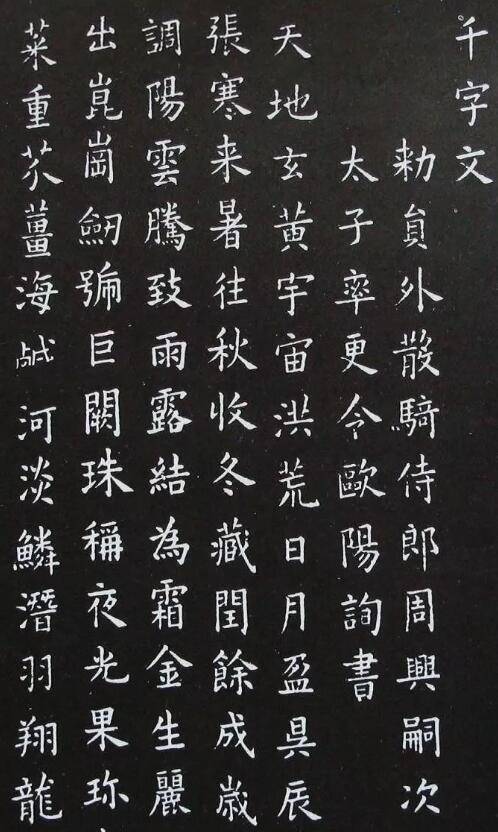 千字文
勑貟外散騎侍郎周興嗣次
太子率更令歐陽詢書
天地玄黃宇宙洪荒日月盈昃辰
張寒来暑往秋收冬藏閏餘成歲
調陽雲騰致雨露結為霜金生麗
出崑崗劒號巨闕珠稱夜光果珎
菜重芥薑海鹹河淡鱗潛羽翔龍